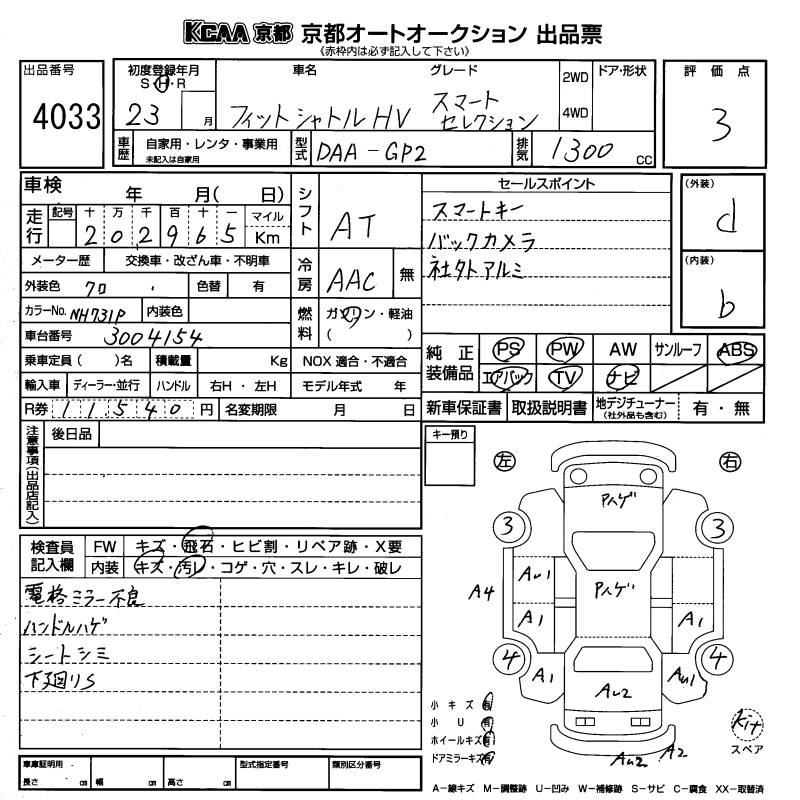 KCAA 京都 京都オートオークション 出品票
《赤枠内は必ず記入して下さい》
出品番号
4033
初度登録年月
S・H・R
23 月
車名
フィットシャトルHV
グレード
スマート
セレクション
2WD
4WD
ドア・形状
評価点
3
車歴
自家用・レンタ・事業用
未記入は自家用
型式
DAA-GP2
排気
1300 CC
車検 年 月( 日)
走行
記号 十 万 千 百 十 一 マイル
202965 Km
メーター歴 交換車・改ざん車・不明車
外装色 クロ 色替 有
カラーNo. NH731P 内装色
車台番号 3004154
乗車定員( )名 積載量 Kg
NOX 適合・不適合
輸入車 ディーラー・並行 ハンドル 右H・左H モデル年式 年
R券 11540 円 名変期限 月 日
シフト
AT
冷房
AAC 無
燃料
ガソリン・軽油
( )
セールスポイント
スマートキー
バックカメラ
社外アルミ
(外装)
d
(内装)
b
純正装備品
PS PW AW サンルーフ ABS
エアバック TV ナビ
新車保証書 取扱説明書 地デジチューナー 有・無
(社外品も含む)
注意事項(出品店記入)
後日品
キー預り
左
右
検査員記入欄
FW キズ・飛石・ヒビ割・リペア跡・X要
内装 キズ・汚レ・コゲ・穴・スレ・キレ・破レ
電格ミラー不良
ハンドルハゲ
シートシミ
下廻りS
Pハゲ
3 3
AU1 Pハゲ
A4
A1 A1
4 4
A1 AU2 AU1
小キズ 有
小 U 有
ホイールキズ 有
ドアミラーキズ 有
AU2 A2
Kit
スペア
車庫証明用
長さ cm 幅 cm 高さ cm
型式指定番号
類別区分番号
A-線キズ M-調整跡 U-凹み W-補修跡 S-サビ C-腐食 XX-取替済